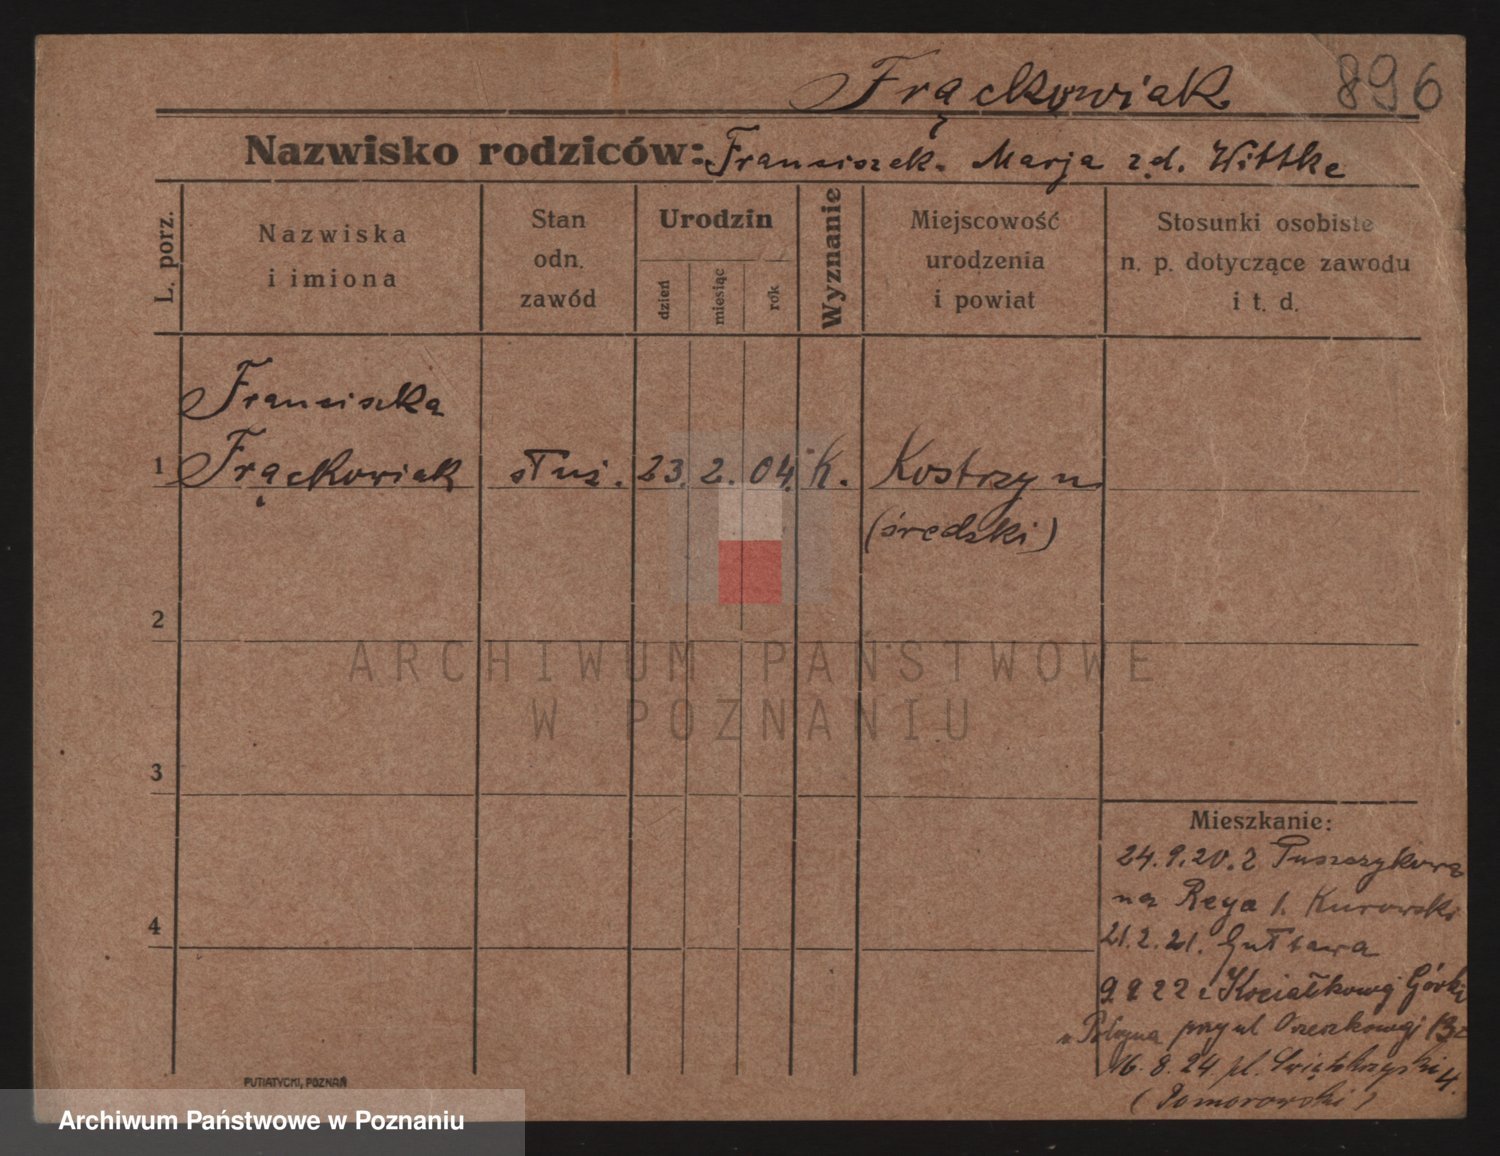 Frąckowiak 896
Nazwisko rodziców: Franciszek. Marja z d. Wittke
L. porz.
Nazwiska
i imiona
Stan
odn.
zawód
Urodzin
dzień
miesiąc
rok
Wyznanie
Miejscowość
urodzenia
i powiat
Stosunki osobiste
n. p. dotyczące zawodu
i t. d.
Franciszka
1 Frąckowiak służ. 23. 2. 04. K. Kostrzyn
(średzki)
2
ARCHIWUM PAŃSTWOWE
W POZNANIU
3
Mieszkanie:
24.9.20. z Puszczykowa
na Reya 1. Kurowski
4
21.2.21. Gułtowa
9 2 22 z Kociałkowej Górki
przy ul Orzeszkowej 13
16. 8. 24 pl. Świętokrzyski 4.
(Pomorowski)
PUTIATYCKI, POZNAŃ
Archiwum Państwowe w Poznaniu